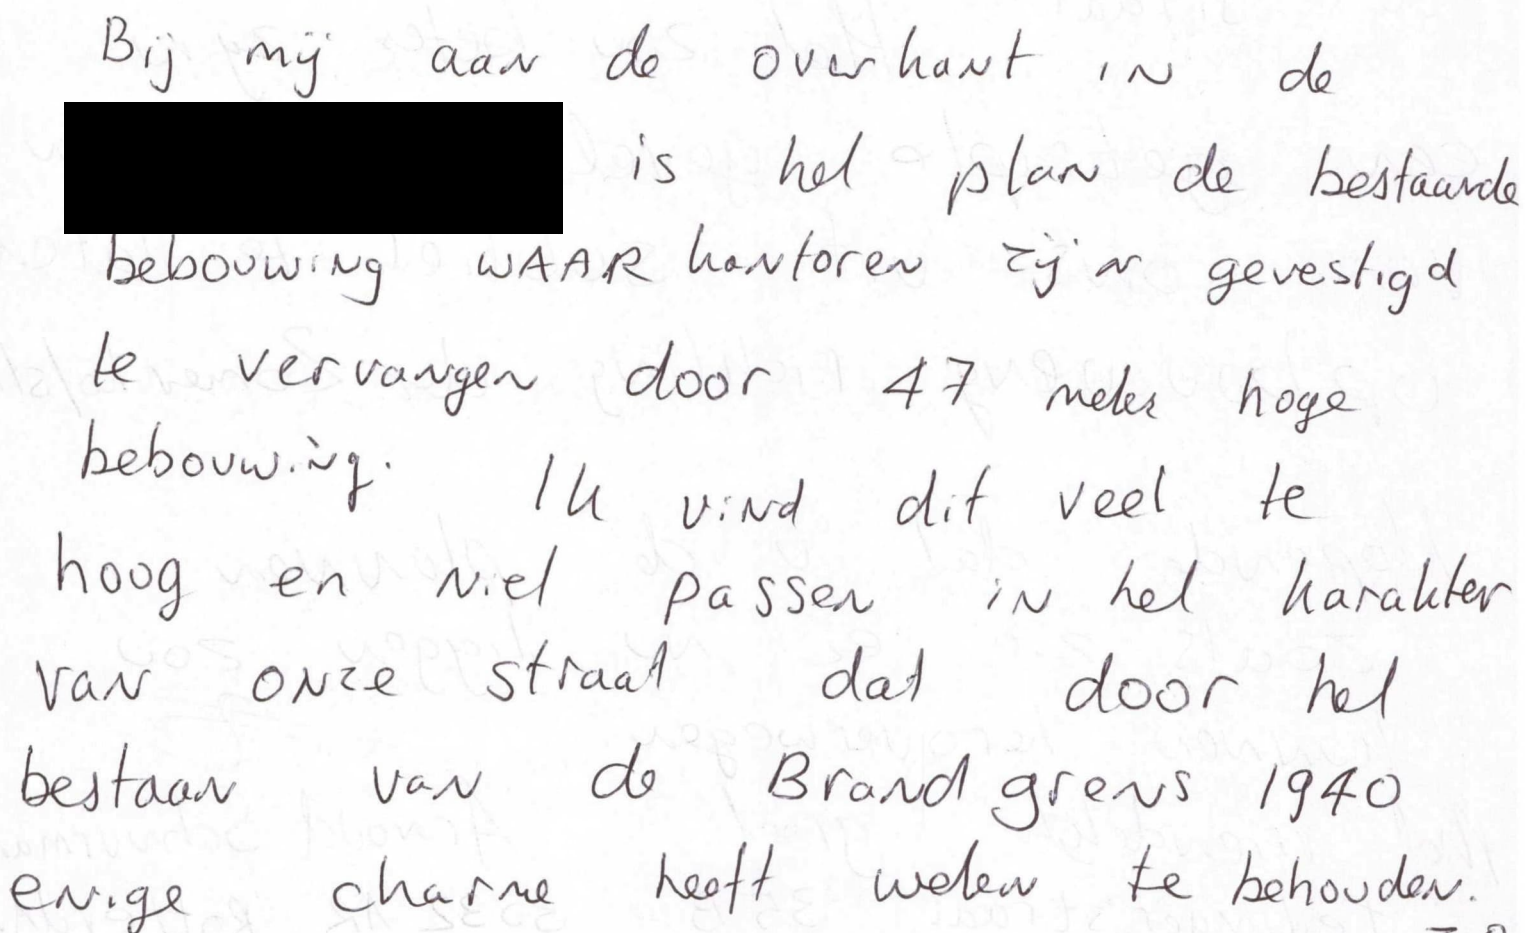 Bij mij aan de overkant in de
is het plan de bestaande
bebouwing WAAR kantoren zijn gevestigd
te vervangen door 47 meter hoge
bebouwing. Ik vind dit veel te
hoog en niet passen in het karakter
van onze straat dat door het
bestaan van de Brandgrens 1940
enige charme heeft weten te behouden.